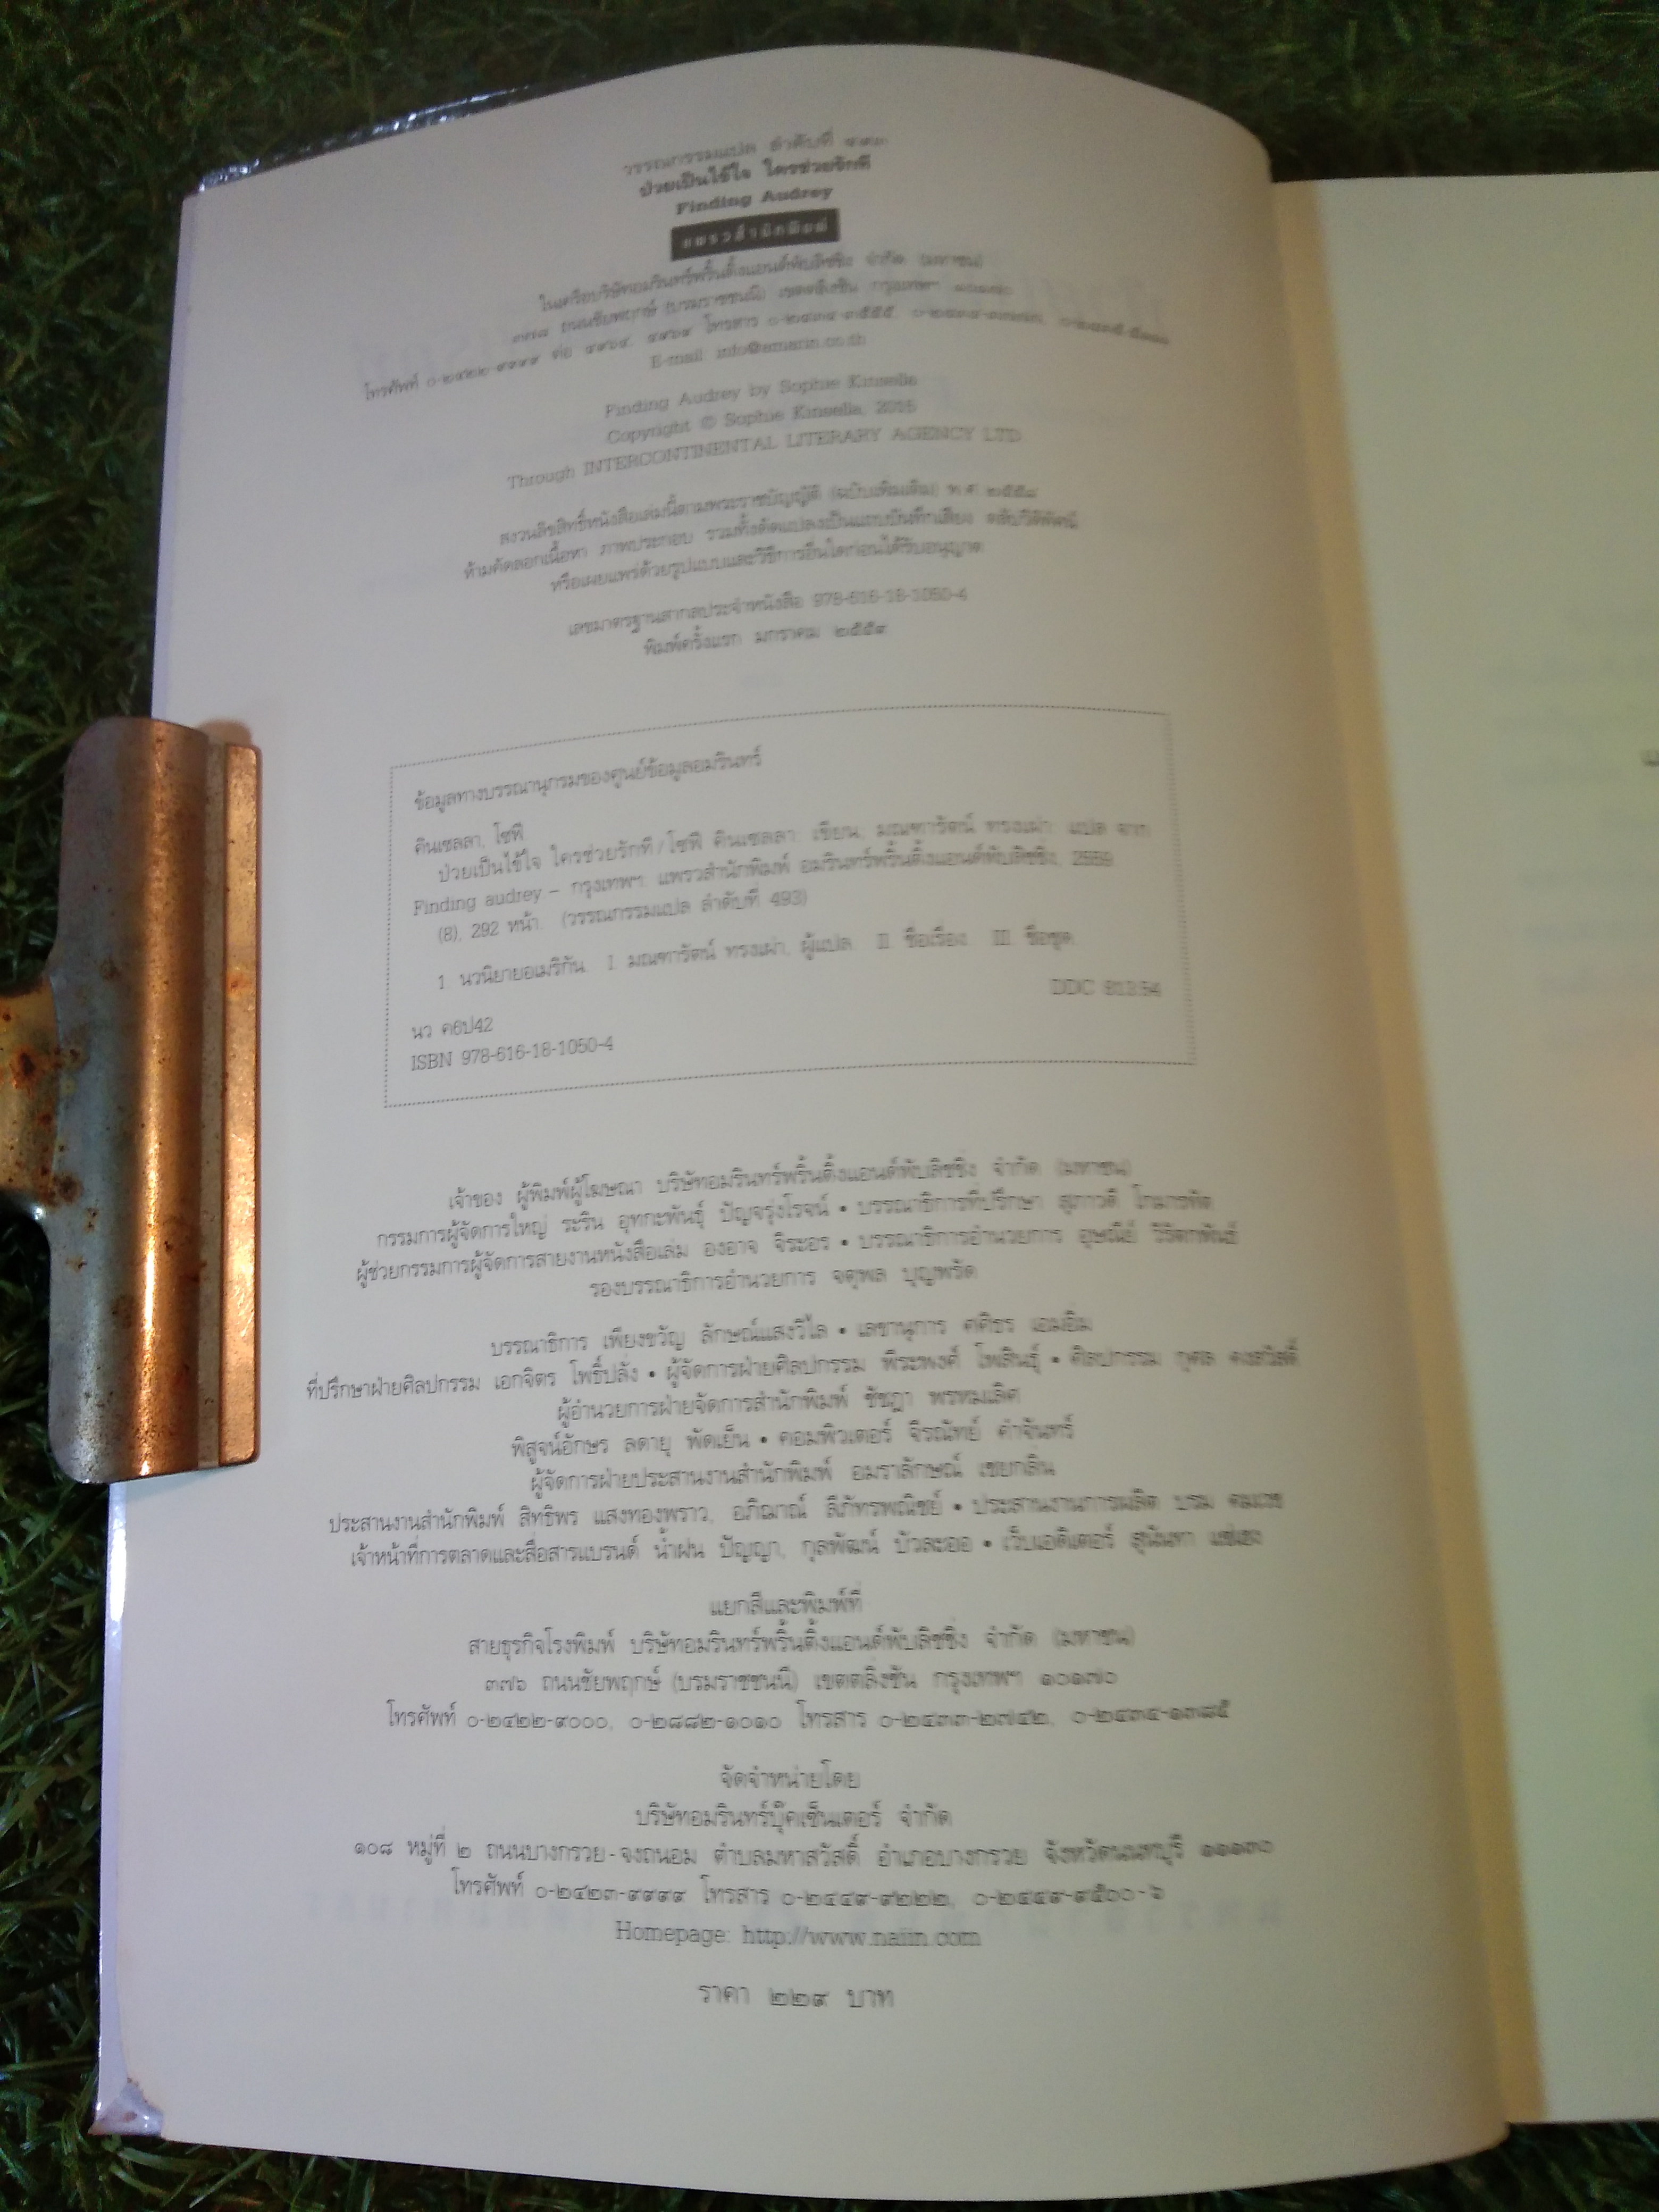 วรรณกรรมแปล ลำดับที่ ๔๙๓
ป่วยเป็นไข้ใจ ใครช่วยรักที
Finding Audrey
แพรวสำนักพิมพ์
ในเครือบริษัทอมรินทร์พริ้นติ้งแอนด์พับลิชชิ่ง จำกัด (มหาชน)
ถนนชัยพฤกษ์ (บรมราชชนนี) เขตตลิ่งชัน กรุงเทพฯ ๑๐๑๗๐
โทรศัพท์ ๐-๒๔๒๒-๙๙๙๙ ต่อ ๔๙๖๔, ๔๙๖๙ โทรสาร ๐-๒๔๓๔-๓๕๕๕,
E-mail: info@amarin.co.th
Finding Audrey by Sophie Kinsella
Copyright © Sophie Kinsella, 2015
Through INTERCONTINENTAL LITERARY AGENCY LTD
สงวนลิขสิทธิ์หนังสือเล่มนี้ตามพระราชบัญญัติ (ฉบับเพิ่มเติม) พ.ศ. ๒๕๕๘
ห้ามคัดลอกเนื้อหา ภาพประกอบ รวมทั้งดัดแปลงเป็นแถบบันทึกเสียง ตลับวีดิทัศน์
หรือเผยแพร่ด้วยรูปแบบและวิธีการอื่นใดก่อนได้รับอนุญาต
เลขมาตรฐานสากลประจำหนังสือ 978-616-18-1050-4
พิมพ์ครั้งแรก มกราคม ๒๕๕๙
ข้อมูลทางบรรณานุกรมของศูนย์ข้อมูลอมรินทร์
คินเซลลา, โซฟี.
ป่วยเป็นไข้ใจ ใครช่วยรักที / โซฟี คินเซลลา: เขียน; มณฑารัตน์ ทรงเผ่า: แปล จาก
Finding audrey.-- กรุงเทพฯ: แพรวสำนักพิมพ์ อมรินทร์พริ้นติ้งแอนด์พับลิชชิ่ง, 2559
(8), 292 หน้า. (วรรณกรรมแปล ลำดับที่ 493)
1. นวนิยายอเมริกัน. I. มณฑารัตน์ ทรงเผ่า, ผู้แปล. II. ชื่อเรื่อง. III. ชื่อชุด.
DDC 813.54
นว ค6ป42
ISBN 978-616-18-1050-4
เจ้าของ ผู้พิมพ์ผู้โฆษณา บริษัทอมรินทร์พริ้นติ้งแอนด์พับลิชชิ่ง จำกัด (มหาชน)
กรรมการผู้จัดการใหญ่ ระริน อุทกะพันธุ์ ปัญจรุ่งโรจน์ • บรรณาธิการที่ปรึกษา สุภาวดี โกมารทัต
ผู้ช่วยกรรมการผู้จัดการสายงานหนังสือเล่ม องอาจ จิระอร • บรรณาธิการอำนวยการ อุษณีย์ วิรัตกพันธ์
รองบรรณาธิการอำนวยการ จตุพล บุญพรัด
บรรณาธิการ เพียงขวัญ ลักษณ์แสงวิไล • เลขานุการ ศศิธร เอมอิ่ม
ที่ปรึกษาฝ่ายศิลปกรรม เอกจิตร โพธิ์ปลั่ง • ผู้จัดการฝ่ายศิลปกรรม พีระพงศ์ โพสินธุ์ • ศิลปกรรม กุศล คงสวัสดิ์
ผู้อำนวยการฝ่ายจัดการสำนักพิมพ์ ชัชฎา พรหมเลิศ
พิสูจน์อักษร ลดายุ พัดเย็น • คอมพิวเตอร์ จีรณัทย์ คำจันทร์
ผู้จัดการฝ่ายประสานงานสำนักพิมพ์ อมราลักษณ์ เชยกลิ่น
ประสานงานสำนักพิมพ์ สิทธิพร แสงทองพราว, อภิฌาณ์ ลีภัทรพณิชย์ • ประสานงานการผลิต บรม คมเวช
เจ้าหน้าที่การตลาดและสื่อสารแบรนด์ น้ำฝน ปัญญา, กุลพัฒน์ บัวละออ • เว็บเอดิเตอร์ สุนันทา แซ่เฮง
แยกสีและพิมพ์ที่
สายธุรกิจโรงพิมพ์ บริษัทอมรินทร์พริ้นติ้งแอนด์พับลิชชิ่ง จำกัด (มหาชน)
๓๗๖ ถนนชัยพฤกษ์ (บรมราชชนนี) เขตตลิ่งชัน กรุงเทพฯ ๑๐๑๗๐
โทรศัพท์ ๐-๒๔๒๒-๙๐๐๐, ๐-๒๘๘๒-๑๐๑๐ โทรสาร ๐-๒๔๓๓-๒๗๔๒, ๐-๒๔๓๔-๑๓๘๕
จัดจำหน่ายโดย
บริษัทอมรินทร์บุ๊คเซ็นเตอร์ จำกัด
๑๐๘ หมู่ที่ ๒ ถนนบางกรวย-จงถนอม ตำบลมหาสวัสดิ์ อำเภอบางกรวย จังหวัดนนทบุรี ๑๑๑๓๐
โทรศัพท์ ๐-๒๔๒๓-๙๙๙๙ โทรสาร ๐-๒๔๔๙-๙๒๒๒, ๐-๒๔๔๙-๙๕๐๐-๖
Homepage: http://www.naiin.com
ราคา ๒๒๙ บาท